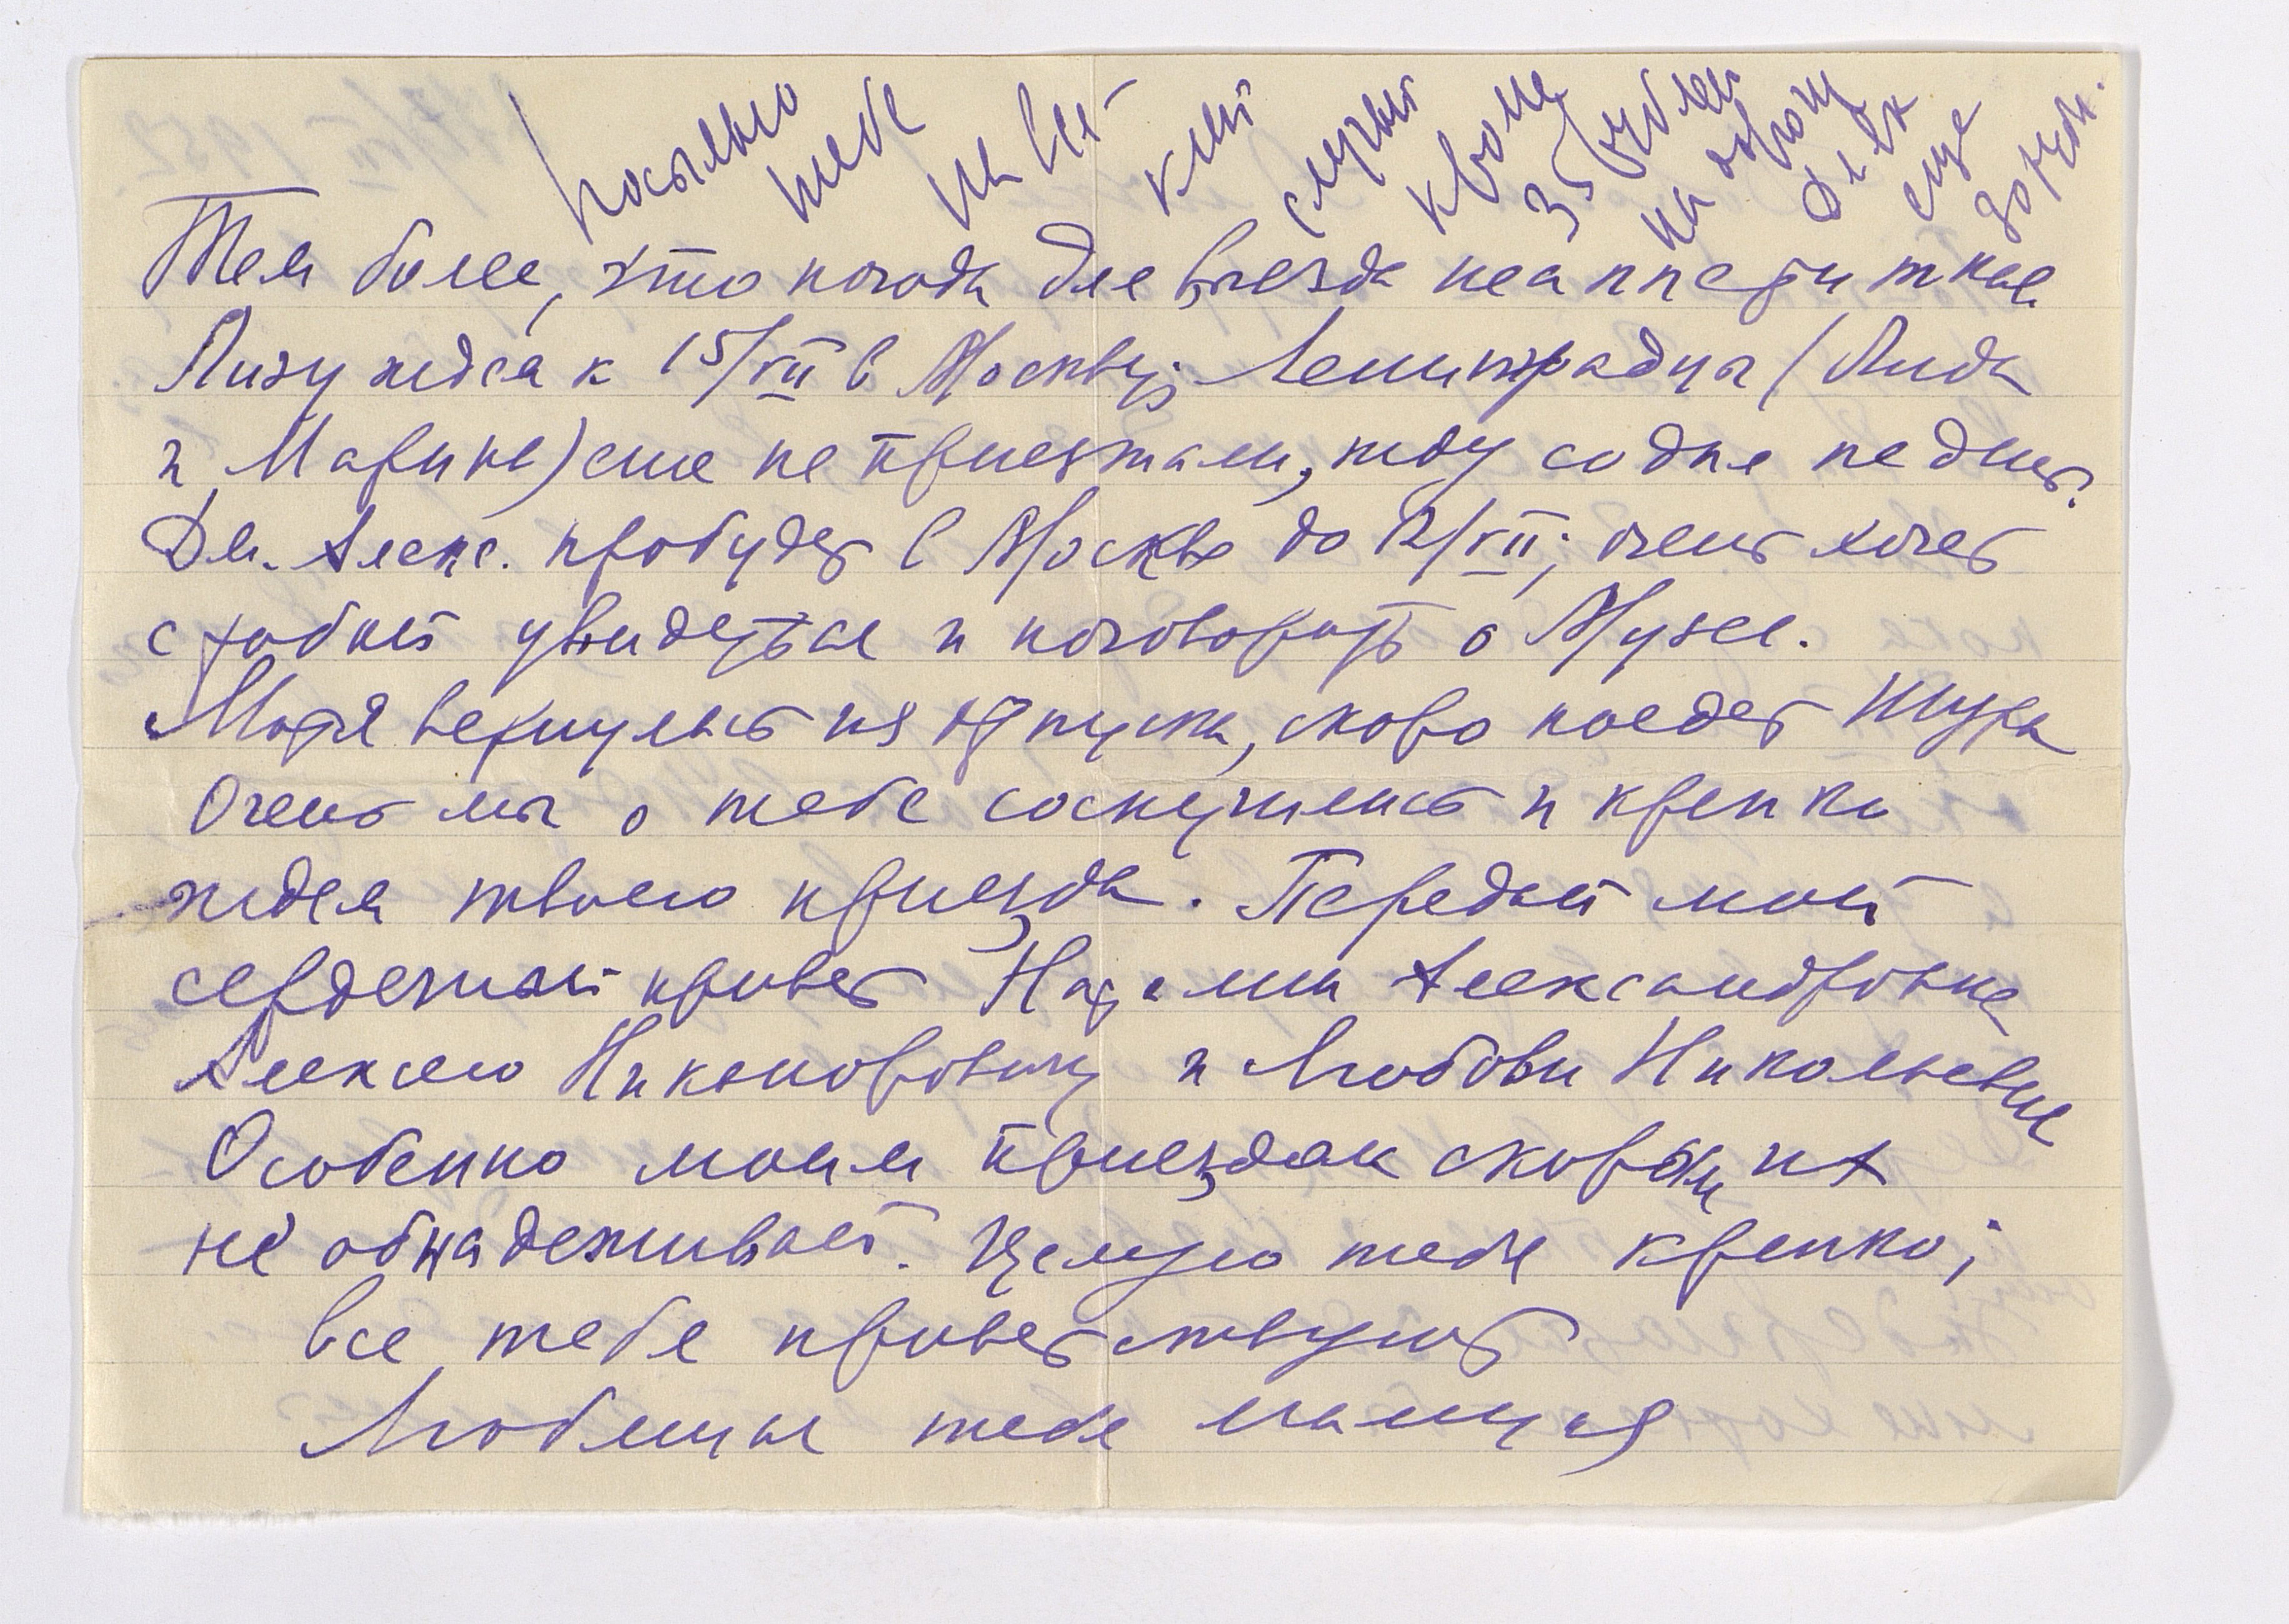 Посылаю
тебе
на вся-
кий
случай
кроме
35 рублей
на дорогу
еще
Тем более, что погода для выезда неаппетитная
Лизу ждем к 15/VII в Москву; Ленинградцы (Лида
и Марина) еще не приезжали, жду со дня на день.
Дм. Алекс. пробудет в Москве до 12/VII; очень хочет
с тобой увидеться и поговорить о Музее.
Мотя вернулась из отпуска, скоро поедет Шура
Очень мы о тебе соскучились и крепко
ждем твоего приезда. Передай мой
сердечный привет Наталии Александровне
Алексею Никаноровичу и Любови Николаевне
Особенно моим приездом скорым их
не обнадеживай. Целую тебя крепко;
все тебя приветствуют
Любящая тебя мамуся